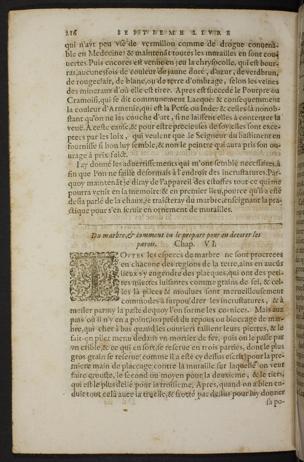 216 SEPTIEME LIVRE
qui n'ayt peu vsé de vermillon comme de drogue conuena-
ble en Medecine: & maintenāt toutes les murailles en sont cou-
uertes. Puis encores est venue en jeu la chrysocolle, qui est bour-
ras, aucunesfois de couleur de jaune doré, d'azur, de verdbrun,
de rouge clair, de blanc, ou de terre d'ombrage, selon les veines
des minieres d'où elle est tirée. Apres est succedé le Pourpre ou
Cramoisi, qui se dit communement Lacque: & consequemment
la couleur d'Armenie, qui est la Perse ou Inde: & celles là nonob-
stant qu'on ne les couche d'art, si ne laissent elles à contenter la
veuë. A ceste cause, & pour estre precieuses de soy, elles sont exce-
ptées par les loix, qui veulent que le Seigneur du bastiment en
fournisse si bon luy semble, & non le peintre qui aura pris son ou-
urage à prix faict.
I'ay donné les aduertissemens qui m'ont semblé necessaires à
fin que l'on ne faille desormais à l'endroit des incrustatures. Par-
quoy maintenāt je diray de l'appareil des estoffes tout ce qui me
pourra venir en la memoire: & en premier lieu, pource qu'il a esté
desja parlé de la chaux, je traicteray du marbre, enseignant la pra-
ctique pour s'en seruir en ornement de murailles.
Du marbre, & comment on le prepare pour en decorer les
parois. Chap. VI.
TOVTES les especes de marbre ne sont procreées
en chacune des regions de la terre, ains en aucūs
lieux s'y engendre des placques, qui ont des peti-
tes miettes luisantes comme grains de sel, & cel-
les là pilées & moulues sont merueilleusement
commodes à surpoudrer les incrustatures, & à
mesler parmy la paste dequoy l'on forme les cornices. Mais aux
pays où il n'y en a point, lon prend de repous ou bloccage de mar-
bre, qui chet à bas quand les ouuriers taillent leurs pierres, & le
fait-on piler menu dedans vn mortier de fer, puis on le passe par
vn crible, & ce qui en sort, se reserue en trois parties, dont le plus
gros grain se reserue, comme il a esté cy dessus escrit, pour la pre-
miere main de placcage contre la muraille sur laquelle on veut
faire crouste, le second ou moyen pour la deuxieme, & le tiers,
qui est le plus delié pour la troisieme. Apres, quand on a bien en-
duit tout cela auec la truelle, & frotté par dessus pour luy donner
sa po-